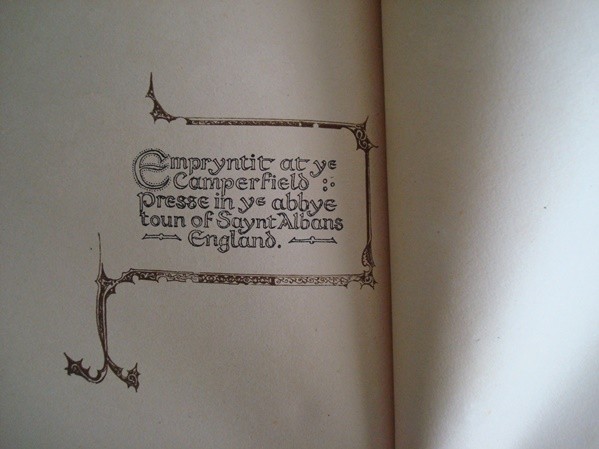 Empryntit at ye
Camperfield :·
Presse in ye abbye
toun of Saynt Albans
England.